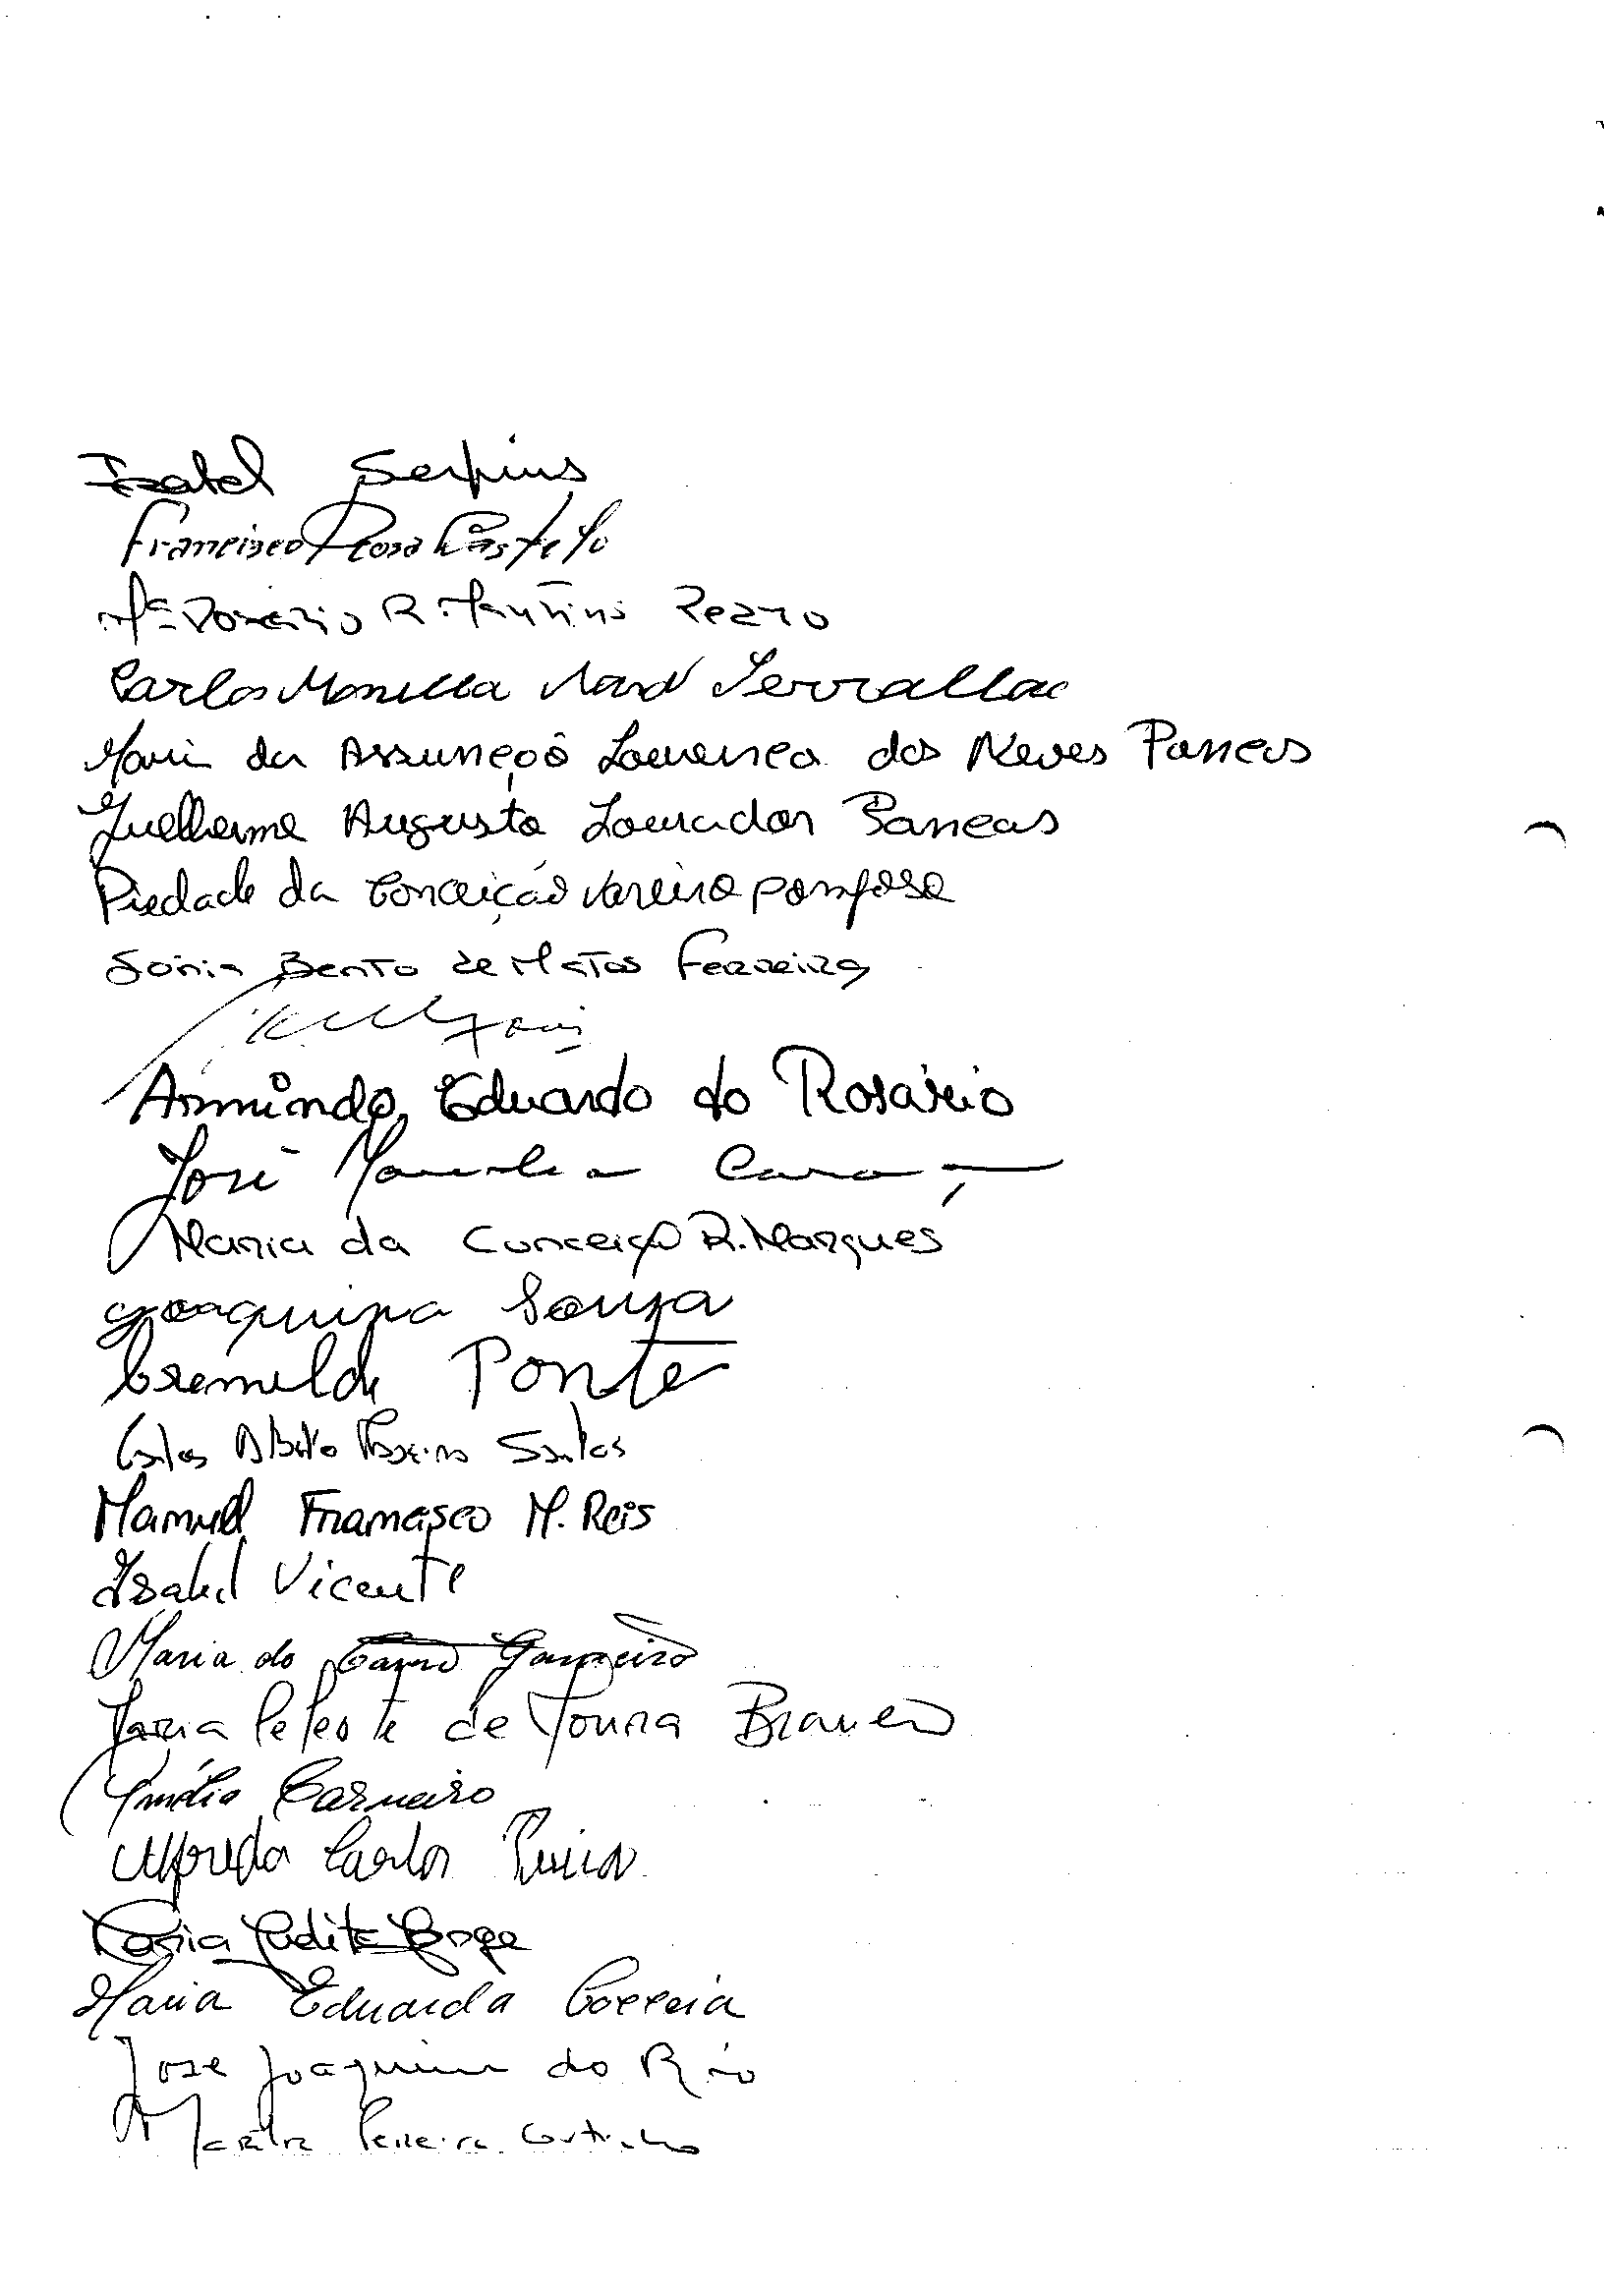 Isabel
Francisco Rosa Castelo
Mª Rosário R. Martins
Carlos
Maria da Assunção Lourenço das Neves Pancas
Guilherme Augusto Lourador Pancas
Piedade da Conceição Vareiro pomposo
Sónia Bento de Matos Ferreira
Armindo Eduardo do Rosário
José
Maria da Conceição R. Marques
Joaquina Sousa
Cremilde Ponte
Carlos Alberto Santos
Manuel Francisco M. Reis
Isabel Vicente
Maria do
Maria Celeste de Moura Branco
Emília Carneiro
Alfredo Carlos
Maria Judite Borges
Maria Eduarda Correia
José Joaquim do Rio
Pereira Coutinho